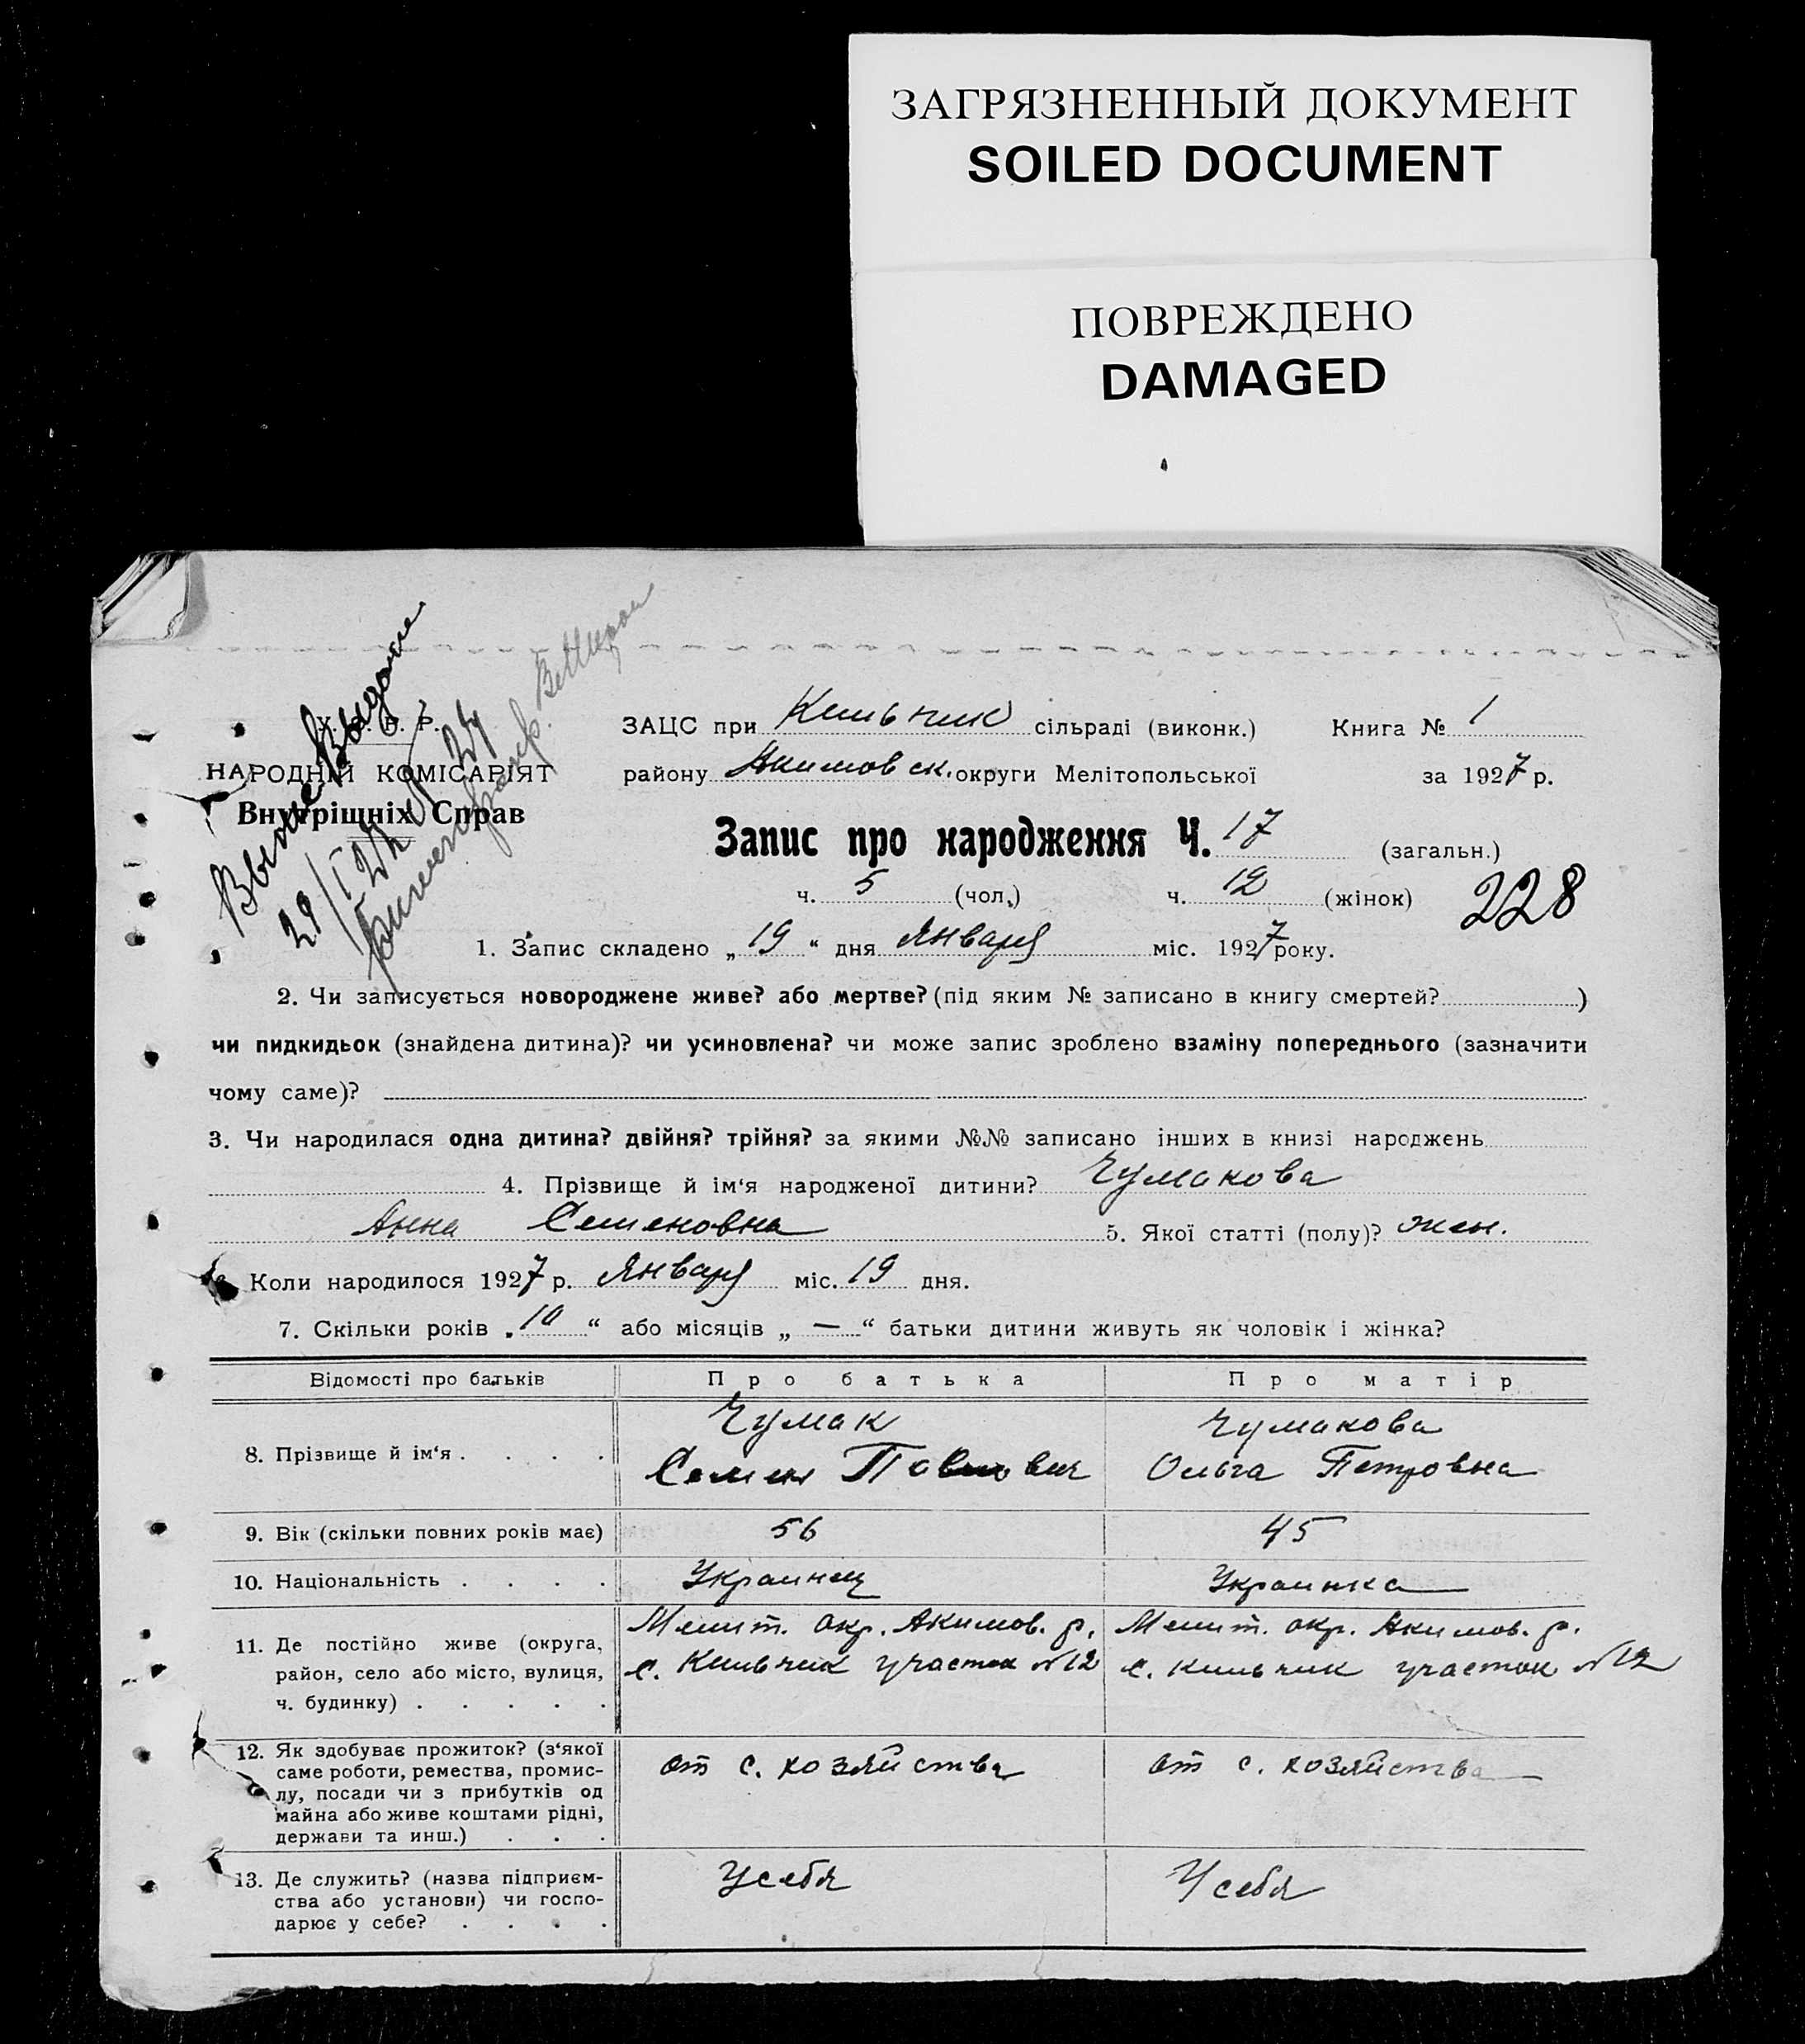 ЗАГРЯЗНЕННЫЙ ДОКУМЕНТ
SOILED DOCUMENT
ПОВРЕЖДЕНО
DAMAGED
НАРОДНІЙ КОМІСАРІЯТ
Внутрішніх Справ
ЗАЦС при Кильчик сільраді (виконк.) Книга № 1
району Акимовск. округи Мелітопольської за 1927 р.
Запис про народження Ч. 17 (загальн.)
ч. 5 (чол.) ч. 12 (жінок) 228
1. Запис складено „ 19 “ дня Января міс. 1927 року.
2. Чи записується новороджене живе? або мертве? (під яким № записано в книгу смертей? )
чи пидкидьок (знайдена дитина)? чи усиновлена? чи може запис зроблено взаміну попереднього (зазначити
чому саме)?
3. Чи народилася одна дитина? двійня? трійня? за якими №№ записано інших в книзі народжень
4. Прізвище й ім‘я народженої дитини? Чумакова
Анна Семеновна 5. Якої статті (полу)? жен.
Коли народилося 1927 р. Января міс. 19 дня.
7. Скільки років „ 10 “ або місяців „ — “ батьки дитини живуть як чоловік і жінка?
Відомості про батьків Про батька Про матір
8. Прізвище й ім‘я . . . . Чумак Чумакова
Семен Павлович Ольга Петровна
9. Вік (скільки повних років має) 56 45
10. Національність . . . . Украинец Украинка
11. Де постійно живе (округа, Мелит. окр. Акимов. р. Мелит. окр. Акимов. р.
район, село або місто, вулиця, с. Кильчик участок №12 с. Кильчик участок №12
ч. будинку) . . . . .
12. Як здобуває прожиток? (з‘якої от с. хозяйства от с. хозяйства
саме роботи, ремества, промис-
лу, посади чи з прибутків од
майна або живе коштами рідні,
держави та инш.) . . .
13. Де служить? (назва підприєм- У себя У себя
ства або установи) чи госпо-
дарює у себе? . . . .